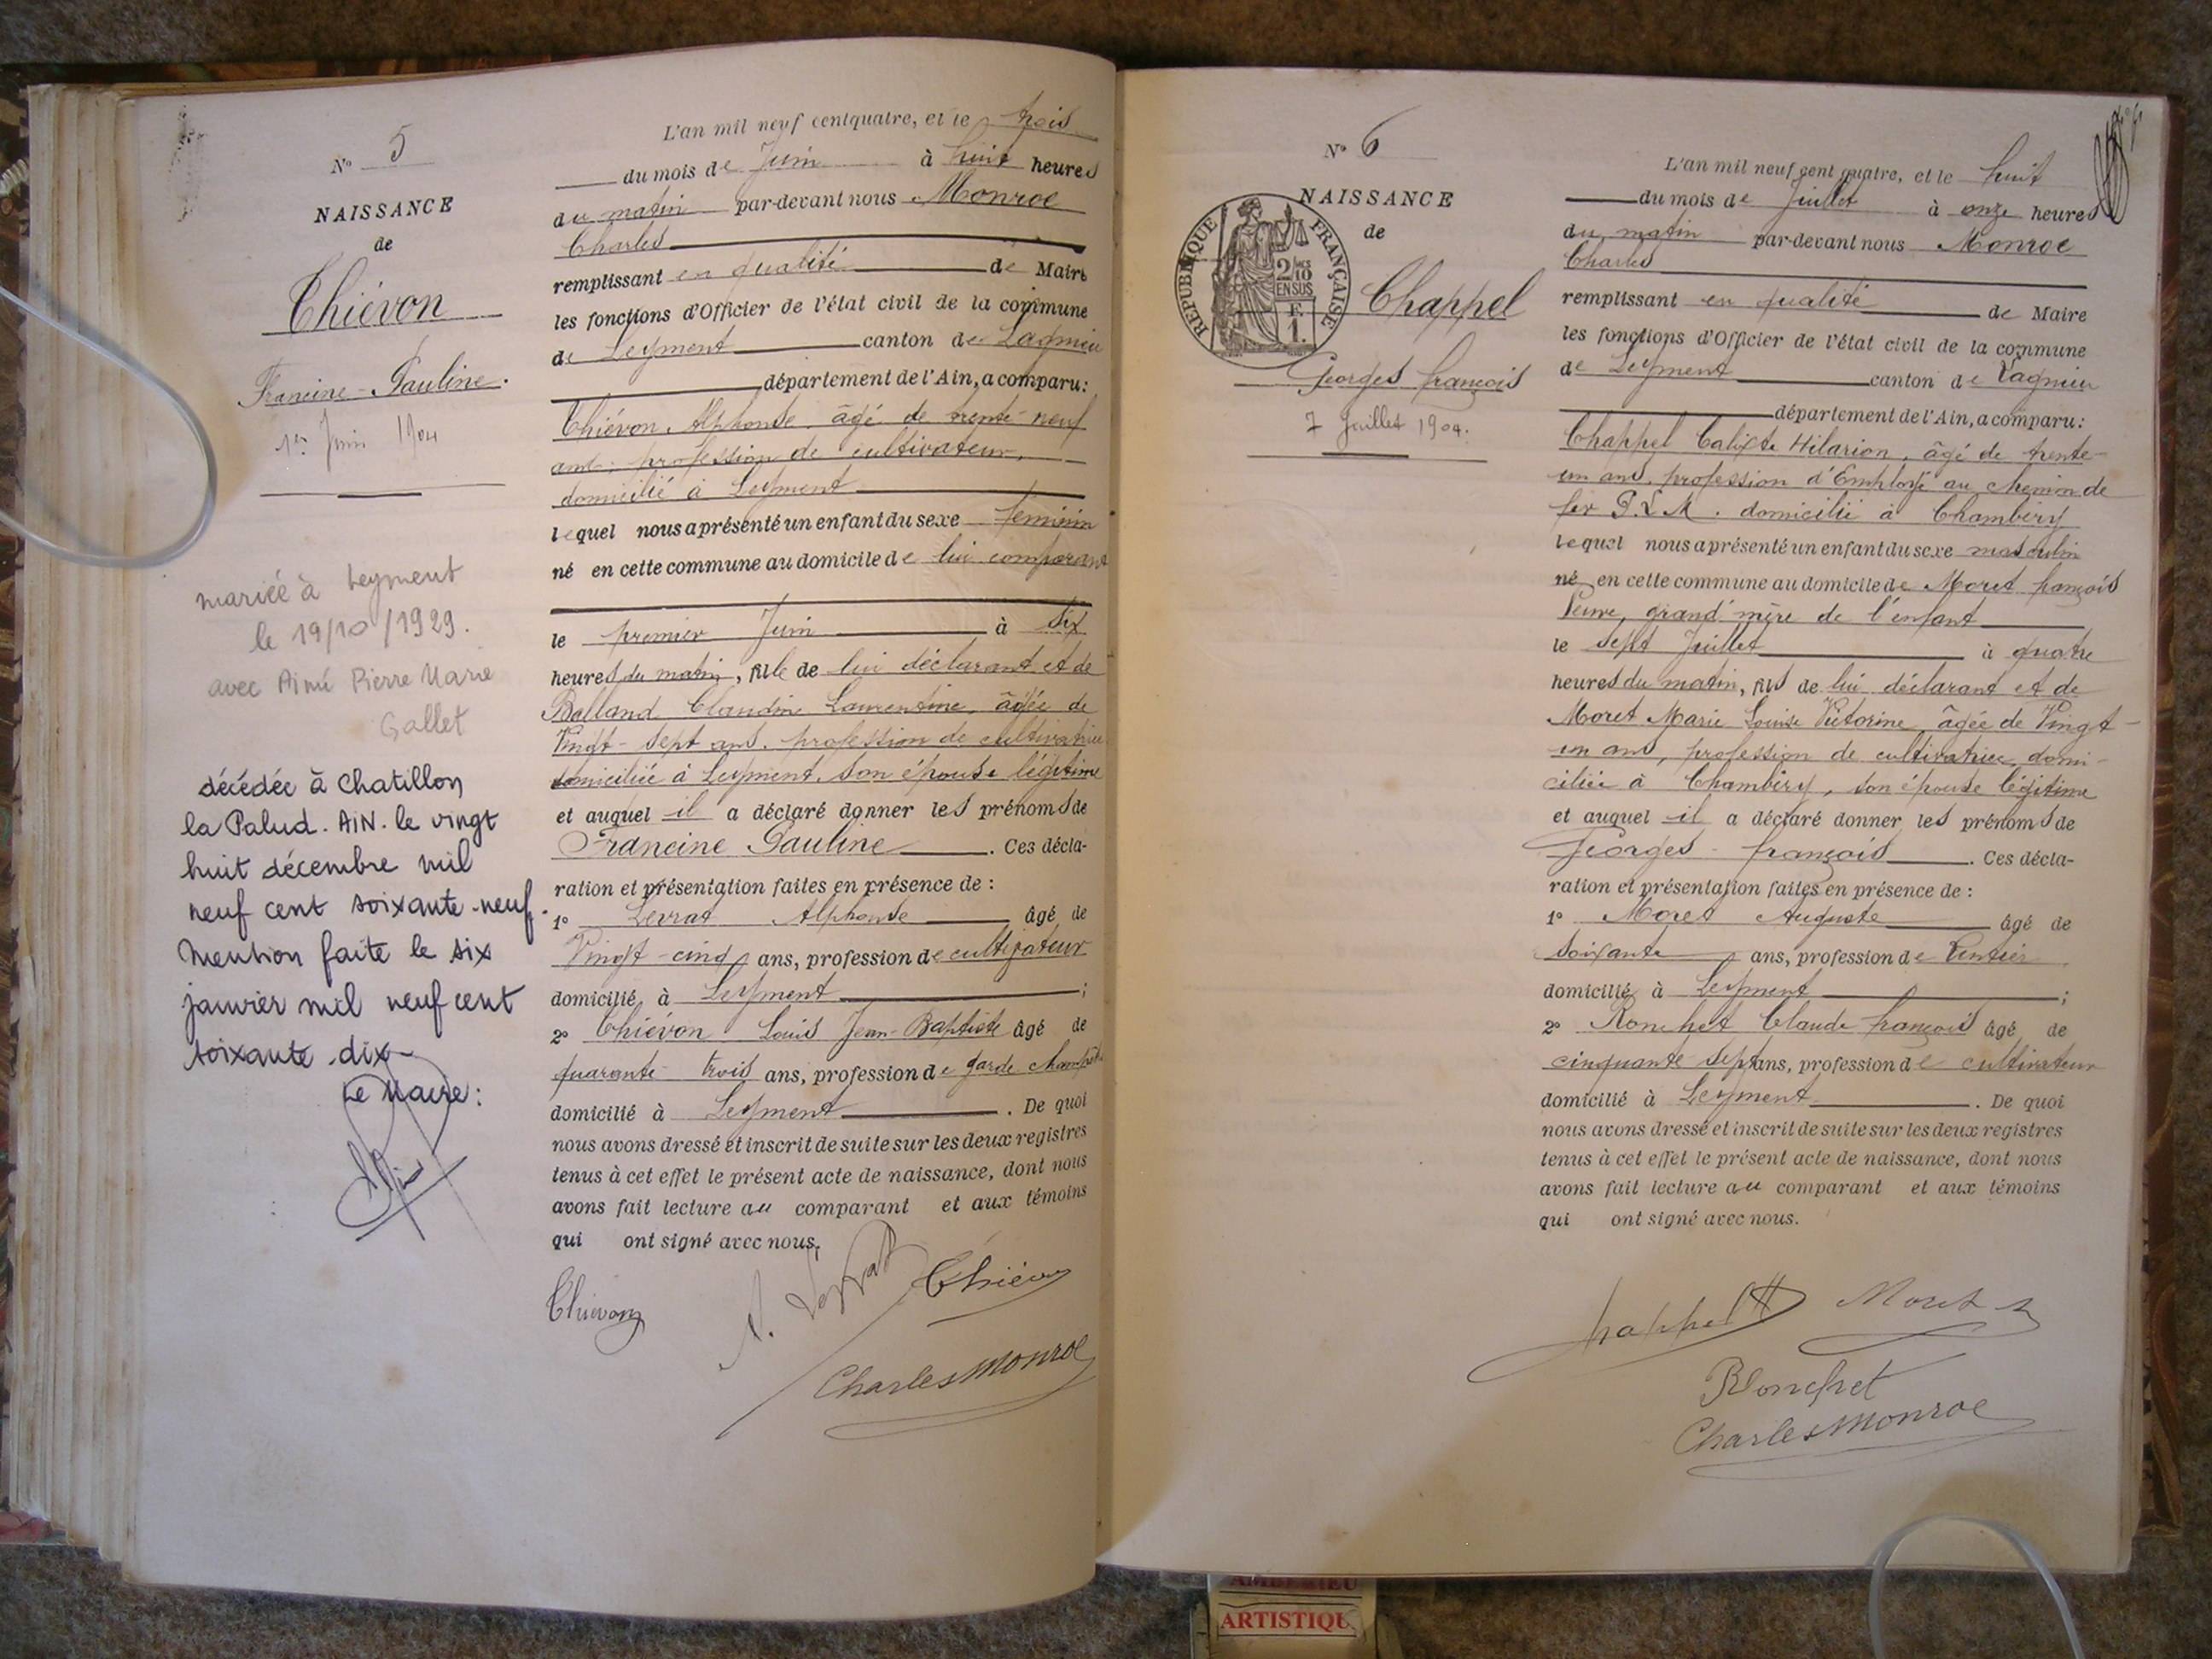 N° 5
NAISSANCE
de
Thiévon
Francine-Pauline.
1er Juin 1904
mariée à Leyment
le 19/10/1929.
avec Aimé Pierre Marie
Gallet
décédée à Chatillon
la Palud. AiN. le vingt
huit décembre mil
neuf cent soixante-neuf.
Mention faite le six
janvier mil neuf cent
soixante-dix
Le Maire:
L'an mil neuf cent quatre, et le trois
du mois de Juin à huit heures
du matin par-devant nous Monroe
Charles
remplissant en qualité de Maire
les fonctions d'Officier de l'état civil de la commune
de Leyment canton de Lagnieu
département de l'Ain, a comparu:
Thiévon Alphonse âgé de trente-neuf
ans, profession de cultivateur,
domicilié à Leyment
lequel nous a présenté un enfant du sexe féminin
né en cette commune au domicile de lui comparant
le premier Juin à six
heures du matin, fille de lui déclarant et de
Balland Claudine Laurentine, âgée de
Vingt-sept ans, profession de cultivatrice
domiciliée à Leyment, son épouse légitime
et auquel il a déclaré donner les prénoms de
Francine Pauline. Ces décla-
ration et présentation faites en présence de :
1° Levrat Alphonse âgé de
Vingt-cinq ans, profession de cultivateur
domicilié à Leyment ;
2° Thiévon Louis Jean-Baptiste âgé de
quarante-trois ans, profession de garde champêtre
domicilié à Leyment. De quoi
nous avons dressé et inscrit de suite sur les deux registres
tenus à cet effet le présent acte de naissance, dont nous
avons fait lecture au comparant et aux témoins
qui ont signé avec nous.
Thievon A. Levrat Thiévon
Charles Monroe
N° 6
NAISSANCE
de
REPUBLIQUE FRANÇAISE
2/10
EN SUS
F.
1.
Chappel
Georges françois
7 Juillet 1904.
L'an mil neuf cent quatre, et le huit
du mois de Juillet à onze heures
du matin par-devant nous Monroe
Charles
remplissant en qualité de Maire
les fonctions d'Officier de l'état civil de la commune
de Leyment canton de Lagnieu
département de l'Ain, a comparu:
Chappel Calixte Hilarion, âgé de trente-
un ans, profession d'Employé au chemin de
fer P.L.M. domicilié à Chambéry
lequel nous a présenté un enfant du sexe masculin
né en cette commune au domicile de Moret françois
Veuve, grand'mère de l'enfant
le sept Juillet à quatre
heures du matin, fils de lui déclarant et de
Moret Marie Louise Victorine âgée de Vingt-
un ans, profession de cultivatrice, domi-
ciliée à Chambéry, son épouse légitime
et auquel il a déclaré donner les prénoms de
Georges-françois. Ces décla-
ration et présentation faites en présence de :
1° Moret Auguste âgé de
soixante ans, profession de Rentier
domicilié à Leyment ;
2° Ronchet Claude françois âgé de
cinquante sept ans, profession de cultivateur
domicilié à Leyment. De quoi
nous avons dressé et inscrit de suite sur les deux registres
tenus à cet effet le présent acte de naissance, dont nous
avons fait lecture au comparant et aux témoins
qui ont signé avec nous.
Chappel Moret
Ronchet
Charles Monroe
AMBERIEU
ARTISTIQU